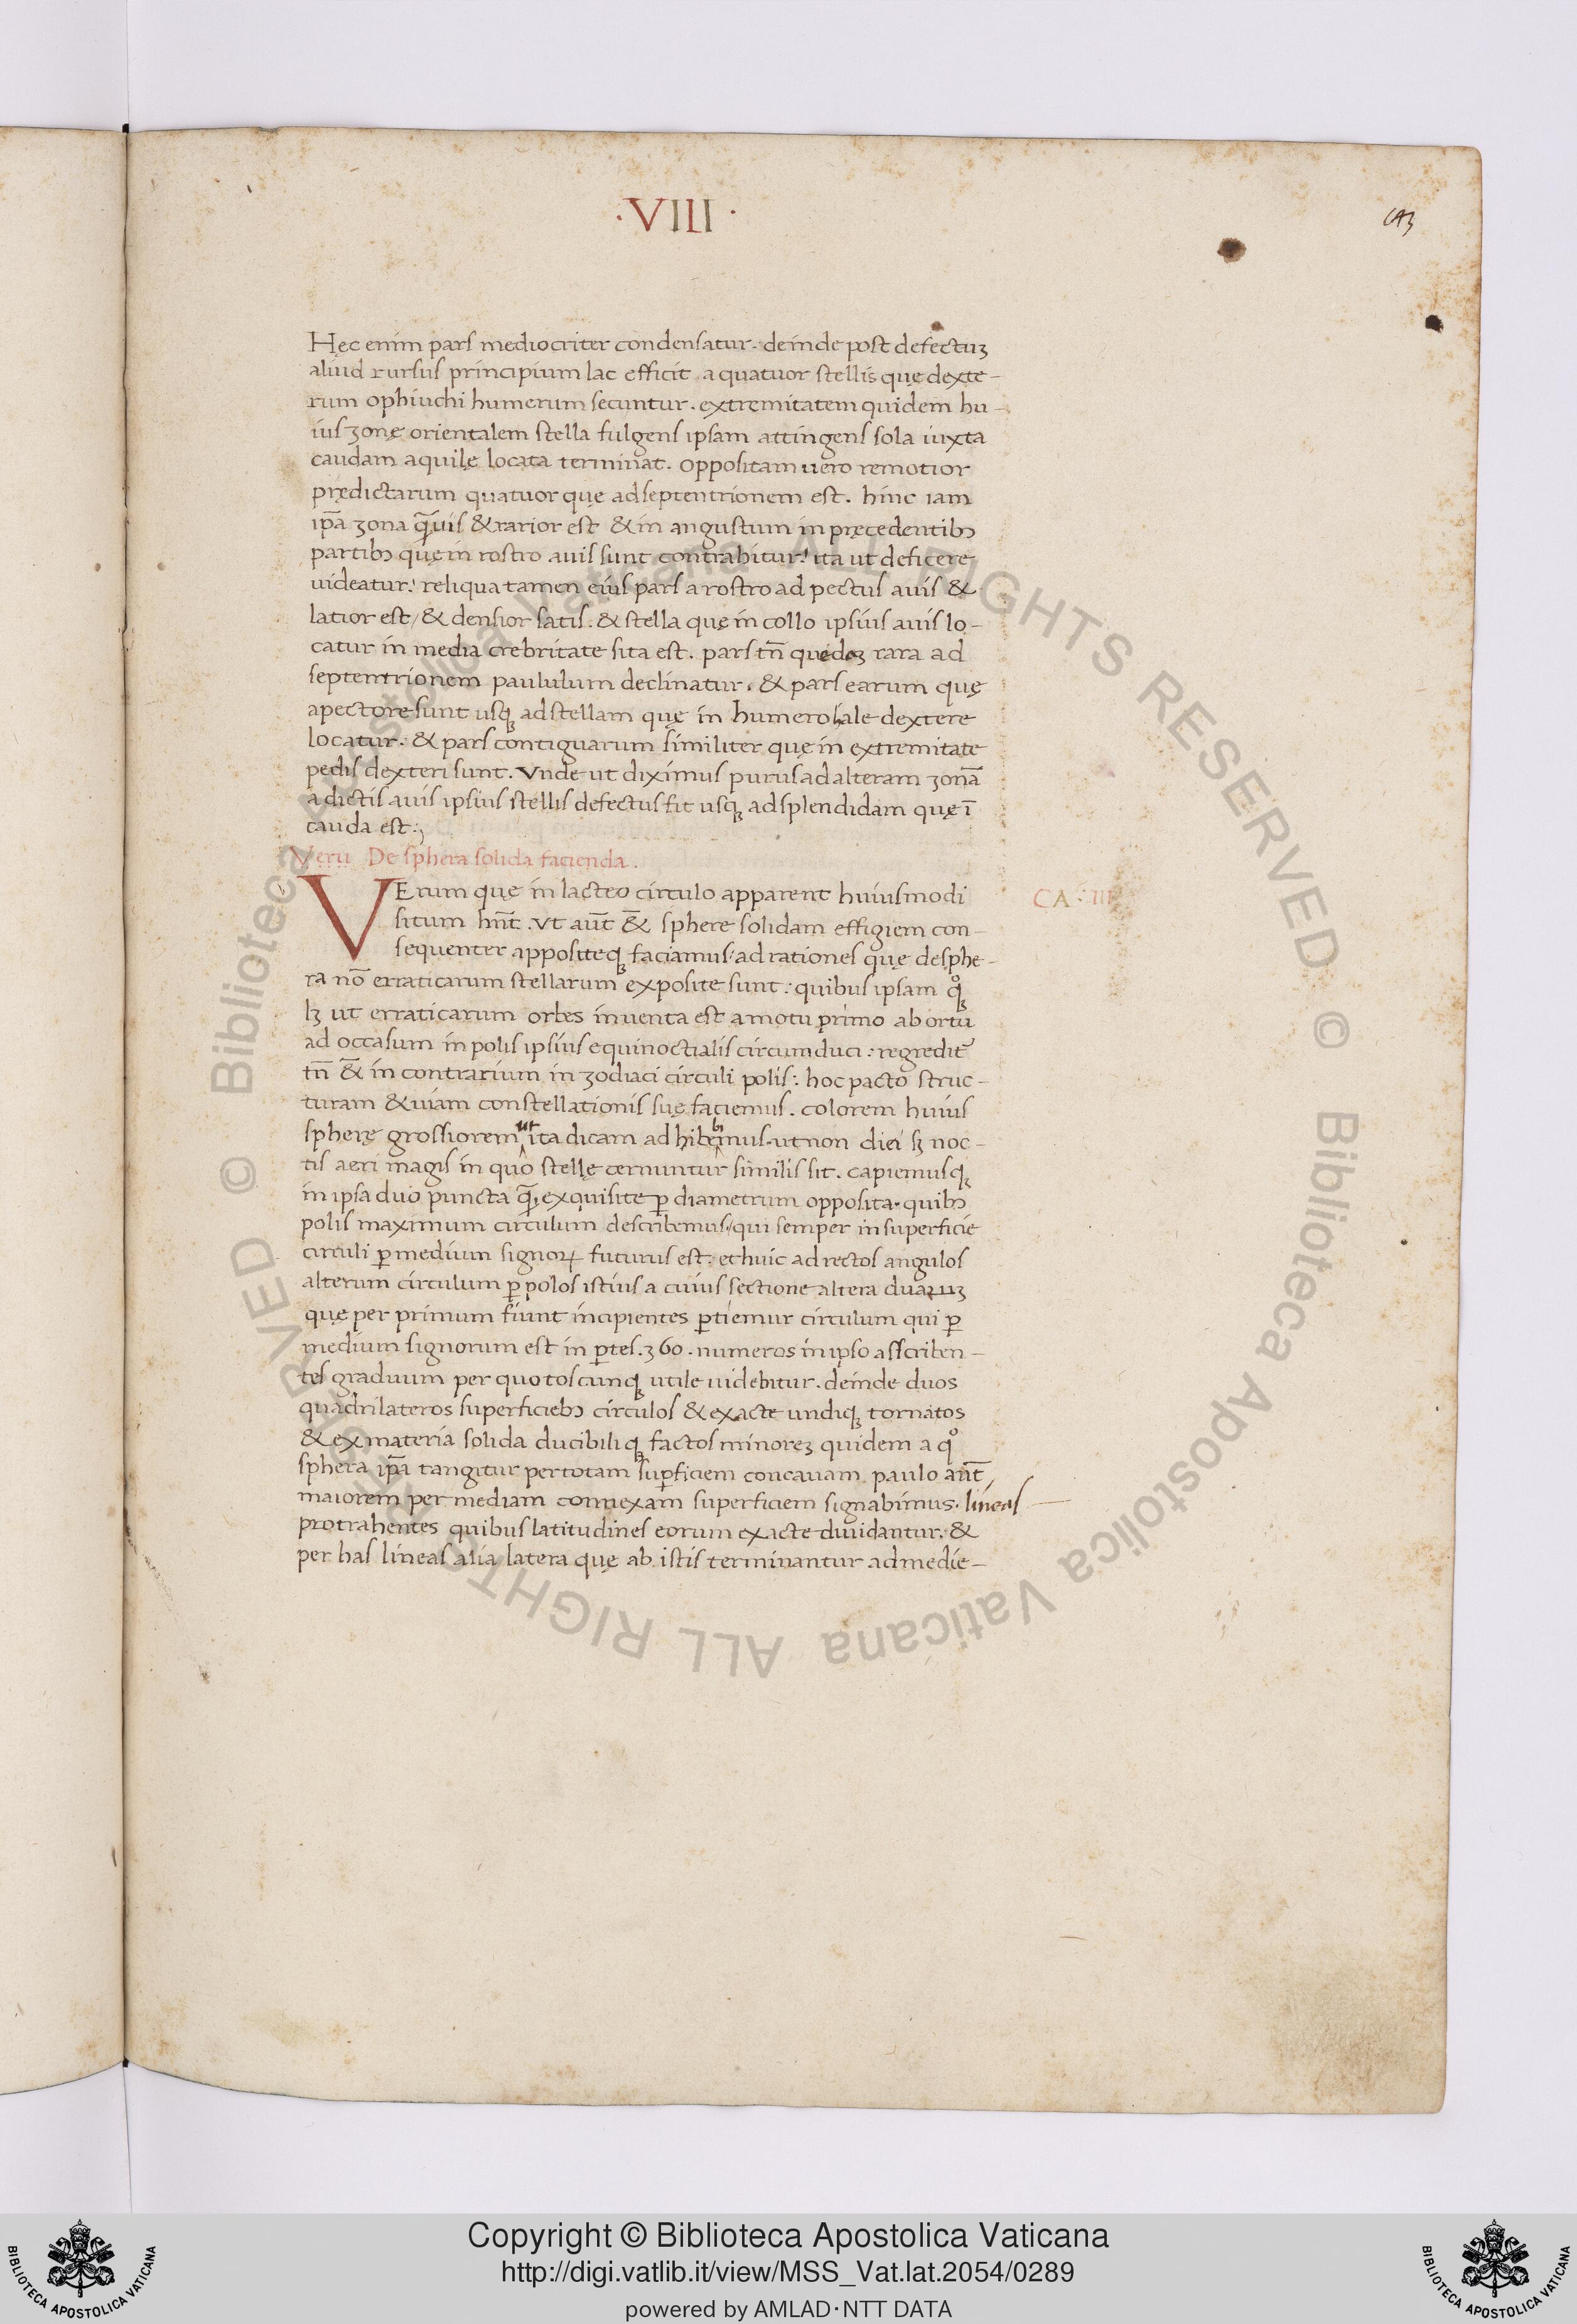 ·VIII·
Hęc enim pars mediocriter condensatur. deinde post defectuꝫ
aliud rursus principium lac efficit a quatuor stellis quę dexte-
rum ophiuchi humerum secuntur. extremitatem quidem hu-
ius zonę orientalem stella fulgens ipsam attingens sola iuxta
caudam aquilę locata terminat. oppositam uero remotior
prędictarum quatuor quę ad septentrionem est. hinc iam
ip̄a zona q̄uis & rarior est & in angustum in pręcedentibꝰ
partibꝰ quę in rostro auis sunt contrahitur: ita ut deficere
uideatur: reliqua tamen eius pars a rostro ad pectus auis &
latior est/ & densior satis. & stella quę in collo ipsius auis lo-
catur in media crebritate sita est. pars tn̄ quedaꝫ rara ad
septentrionem paululum declinatur. & pars earum quę
a pectore sunt usqꝫ ad stellam quę in humero ale dextere
locatur. & pars contiguarum similiter quę in extremitate
pedis dexteri sunt. Vnde ut diximus purus ad alteram zonā
a dictis auis ipsius stellis defectus fit usqꝫ ad splendidam quę ī
cauda est:,
Verū De sphera solida facienda.
VErum quę in lacteo circulo apparent huiusmodi
CA· III
situm hn̄t. Vt aut̄ &̄ sphere solidam effigiem con-
sequenter appositeqꝫ faciamus/ ad rationes quę de sphe-
ra nō erraticarum stellarum exposite sunt: quibus ipsam qͦꝫ
lꝫ ut erraticarum orbes inuenta est a motu primo ab ortu
ad occasum in polis ipsius equinoctialis circumduci: regredit᷑
tn̄ &̄ in contrarium in zodiaci circuli polis: hoc pacto struc-
turam & uiam constellationis suę faciemus. colorem huius
spherę grossiorem ut ita dicam adhibebimus. ut non diei sꝫ noc-
tis aeri magis in quo stellę cernuntur similis sit. capiemusqꝫ
in ipsa duo puncta q̄ exquisite ꝑ diametrum opposita. quibꝰ
polis maximum circulum describemus/ qui semper in superficie
circuli ꝑ medium signoꝝ futurus est. et huic ad rectos angulos
alterum circulum ꝑ polos istius a cuius sectione altera duaruꝫ
quę per primum fiunt incipientes ꝑtiemur circulum qui ꝑ
medium signorum est in ꝑtes. 360. numeros in ipso asscriben-
tes graduum per quotoscunqꝫ utile uidebitur. deinde duos
quadrilateros superficiebꝰ circulos & exacte undiqꝫ tornatos
& ex materia solida ducibiliqꝫ factos minoreꝫ quidem a qͦ
sphera ip̄a tangitur per totam suꝑficiem concauam paulo aut̄
maiorem per mediam conuexam superficiem signabimus. lineas
protrahentes quibus latitudines eorum exacte diuidantur. &
per has lineas alia latera quę ab istis terminantur ad medie-
Copyright © Biblioteca Apostolica Vaticana
http://digi.vatlib.it/view/MSS_Vat.lat.2054/0289
powered by AMLAD·NTT DATA
BIBLIOTECA APOSTOLICA VATICANA
BIBLIOTECA APOSTOLICA VATICANA
© Biblioteca Apostolica Vaticana ALL RIGHTS RESERVED © Biblioteca Apostolica Vaticana ALL RIGHTS RESERVED